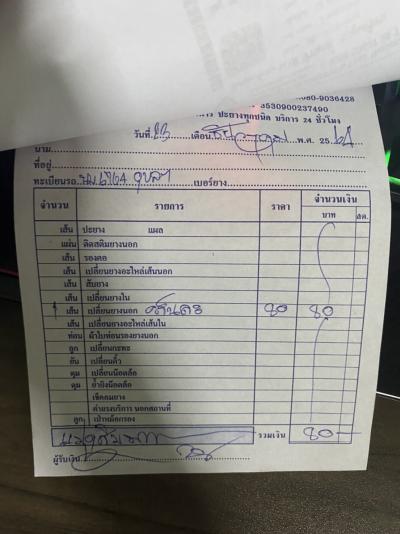 080-9036428
3530900237490
ปะยางทุกชนิด บริการ 24 ชั่วโมง
วันที่ 23 เดือน ธันวาคม พ.ศ. 25
นาม
ที่อยู่
ทะเบียนรถ อุบลฯ เบอร์ยาง
จำนวน รายการ ราคา จำนวนเงิน
บาท สต.
เส้น ปะยาง แผล
แผ่น ติดสติมยางนอก
เส้น รองคอ
เส้น เปลี่ยนยางอะไหล่เส้นนอก
เส้น สับยาง
เส้น เปลี่ยนยางใน
1 เส้น เปลี่ยนยางนอก 80 80
เส้น เปลี่ยนยางอะไหล่เส้นใน
ท่อน ผ้าใบท่อนรองยางนอก
ลูก เปลี่ยนกะทะ
อัน เปลี่ยนคิ้ว
ตุม เปลี่ยนน๊อตล้อ
ตุม ย้ำยิงน๊อตล้อ
เช็คลมยาง
ค่าแรงบริการ นอกสถานที่
ลูก เป่าหม้อกรอง
แปดสิบบาท รวมเงิน 80-
ผู้รับเงิน